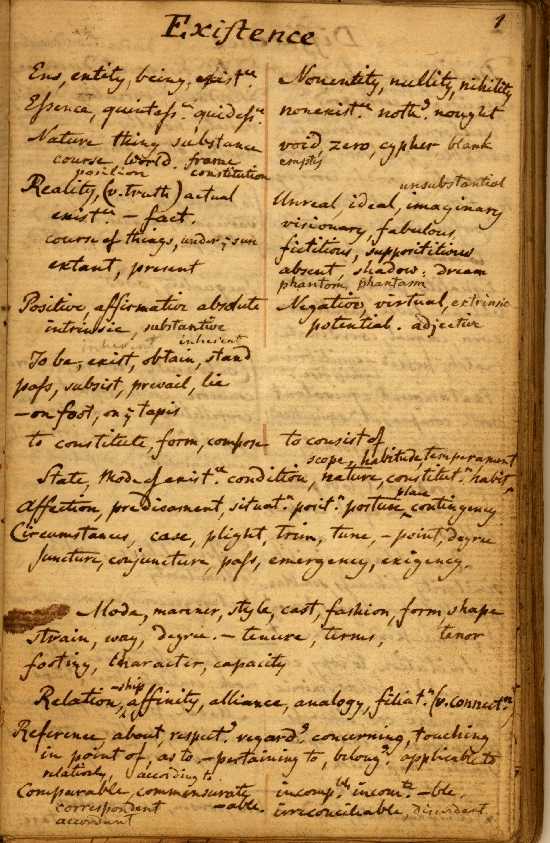 1
Existence
Ens, entity, being, exist.ce
Essence, quintess.ce, quidess.ce
Nature thing substance
course, world. frame
position constitution
Reality, (v. truth) actual
exist.ce – fact.
course of things, under ye sun
extant, present
Positive, affirmative absolute
intrinsic, substantive
inherent
To be, exist, obtain, stand
pass, subsist, prevail, lie
– on foot, on ye tapis
to constitute, form, compose
Nonentity, nullity, nihility
nonexist.ce noth.g nought
void, zero, cypher blank
empty
unsubstantial
Unreal, ideal, imaginary
visionary, fabulous,
fictitious, supposititious
absent, shadow: dream
phantom, phantasm
Negative, virtual, extrinsic
potential. adjective
to consist of
scope, habitude, temperament
State, Mode of exist.ce condition, nature, constitut.n habit
place
Affection, predicament, situat.n posit.n posture, contingency
Circumstances, case, plight, trim, tune, – point, degree
Juncture, conjuncture, pass, emergency, exigency.
Mode, manner, style, cast, fashion, form, shape
Strain, way, degree. – tenure, terms, tenor
footing, character, capacity
–ship
Relation, affinity, alliance, analogy, filiat.n (v. connect.n
Reference about, respect.g regard.g concerning, touching
in point of, as to – pertaining to, belong.g applicable to
relatively, according to
Comparable, commensurate
–able.
correspondent
accordant
incomp.ble, incom.te –ble,
irreconcilable, discordant